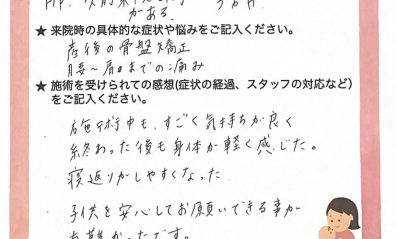 がある。
★ 来院時の具体的な症状や悩みをご記入ください。
産後の骨盤矯正
腰～肩までの痛み
★ 施術を受けられての感想(症状の経過、スタッフの対応など)
をご記入ください。
施術中も、すごく気持ちが良く
終わった後も身体が軽く感じた。
寝返りがしやすくなった
子供を安心してお願いできる事が
かったです。